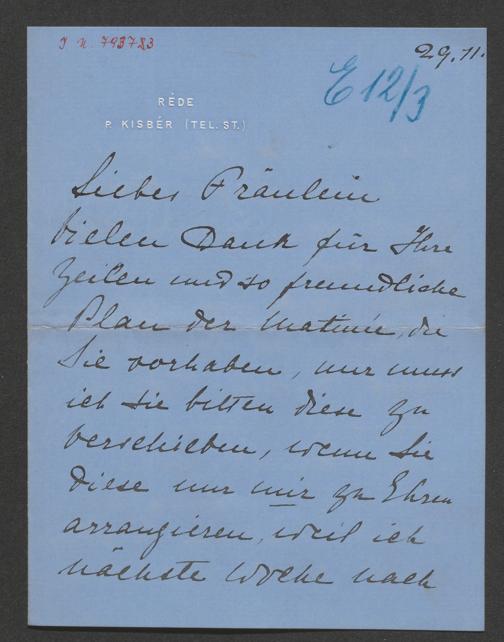 I. N. 793783
29. 11.
E 12/3
RÉDE
P. KISBÉR (TEL. ST.)
Liebes Fräulein
Vielen Dank für Ihre
Zeilen und so freundliche
Plan der Matinée, die
Sie vorhaben, nur muss
ich Sie bitten diese zu
verschieben, wenn Sie
diese nur mir zu Ehren
arrangieren, weil ich
nächste Woche nach